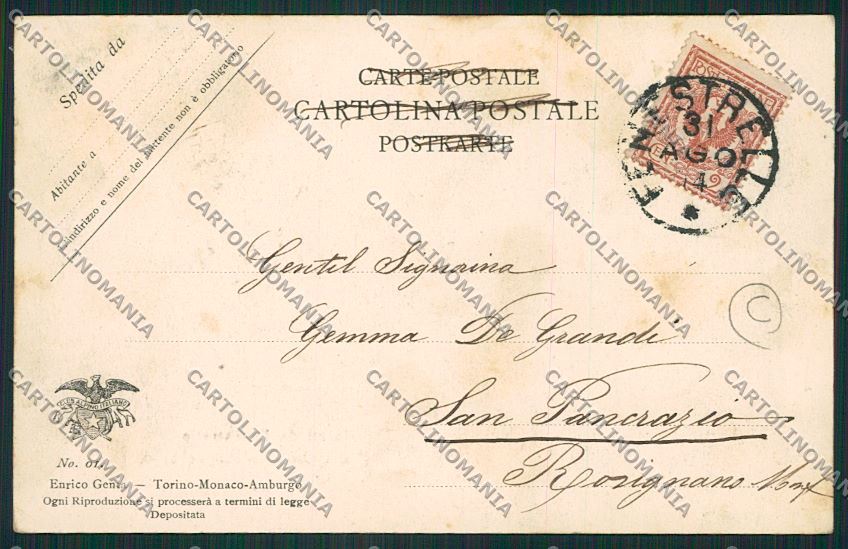 Spedita da
Abitante a
L'indirizzo e nome del mittente non è obbligatorio
CARTE POSTALE
CARTOLINA POSTALE
POSTKARTE
FENESTRELLE
31
AGO
14
Gentil Signorina
Gemma De Grandi
San Pancrazio
Rosignano Monf
C
CLUB ALPINO ITALIANO
No. 01.
Enrico Genta — Torino-Monaco-Amburgo
Ogni Riproduzione si processerà a termini di legge
Depositata
CARTOLINOMANIA